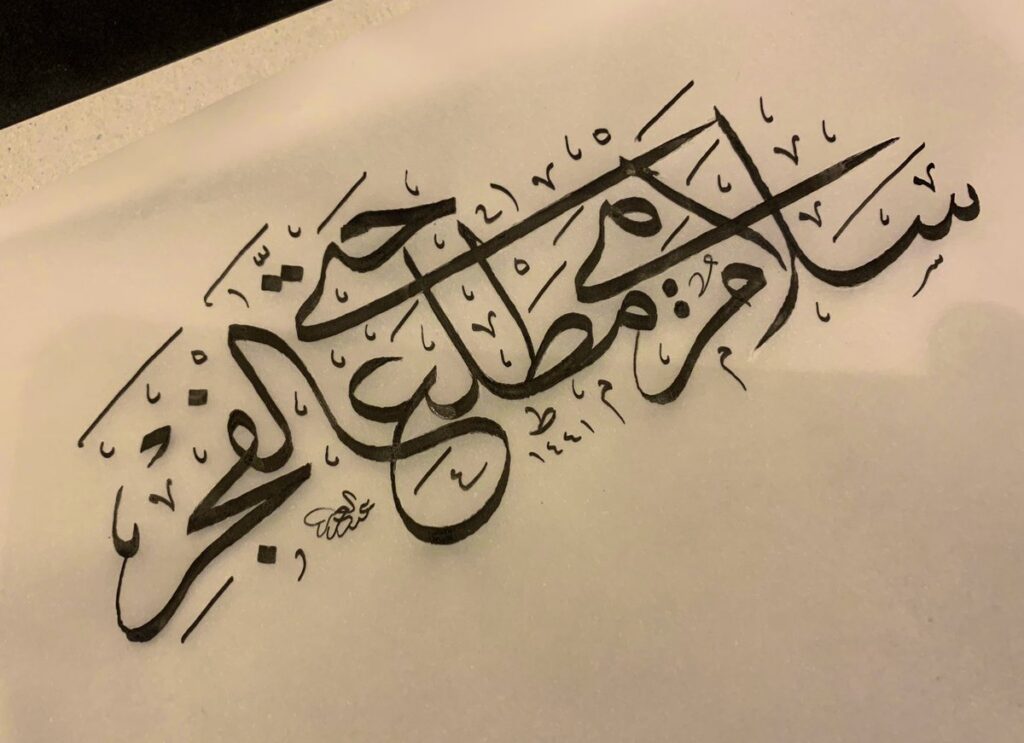 سَلَامٌ هِيَ حَتَّىٰ مَطْلَعِ الْفَجْرِ
١٤٤١